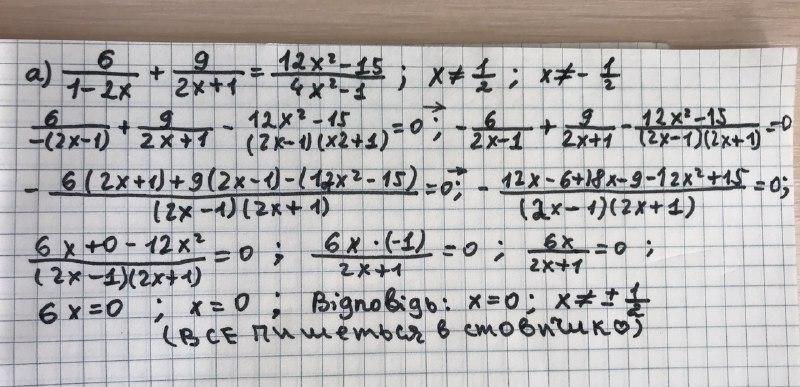 а) 6/(1-2x) + 9/(2x+1) = (12x²-15)/(4x²-1) ; x≠1/2 ; x≠-1/2
6/(-(2x-1)) + 9/(2x+1) - (12x²-15)/((2x-1)(x2+1)) = 0; → -6/(2x-1) + 9/(2x+1) - (12x²-15)/((2x-1)(2x+1)) = 0
- (6(2x+1)+9(2x-1)-(12x²-15))/((2x-1)(2x+1)) = 0; → - (12x-6+18x-9-12x²+15)/((2x-1)(2x+1)) = 0;
(6x+0-12x²)/((2x-1)(2x+1)) = 0 ; (6x·(-1))/(2x+1) = 0 ; 6x/(2x+1) = 0 ;
6x=0 ; x=0 ; Відповідь: x=0; x≠±1/2
(ВСЕ пишеться в стовпчико)